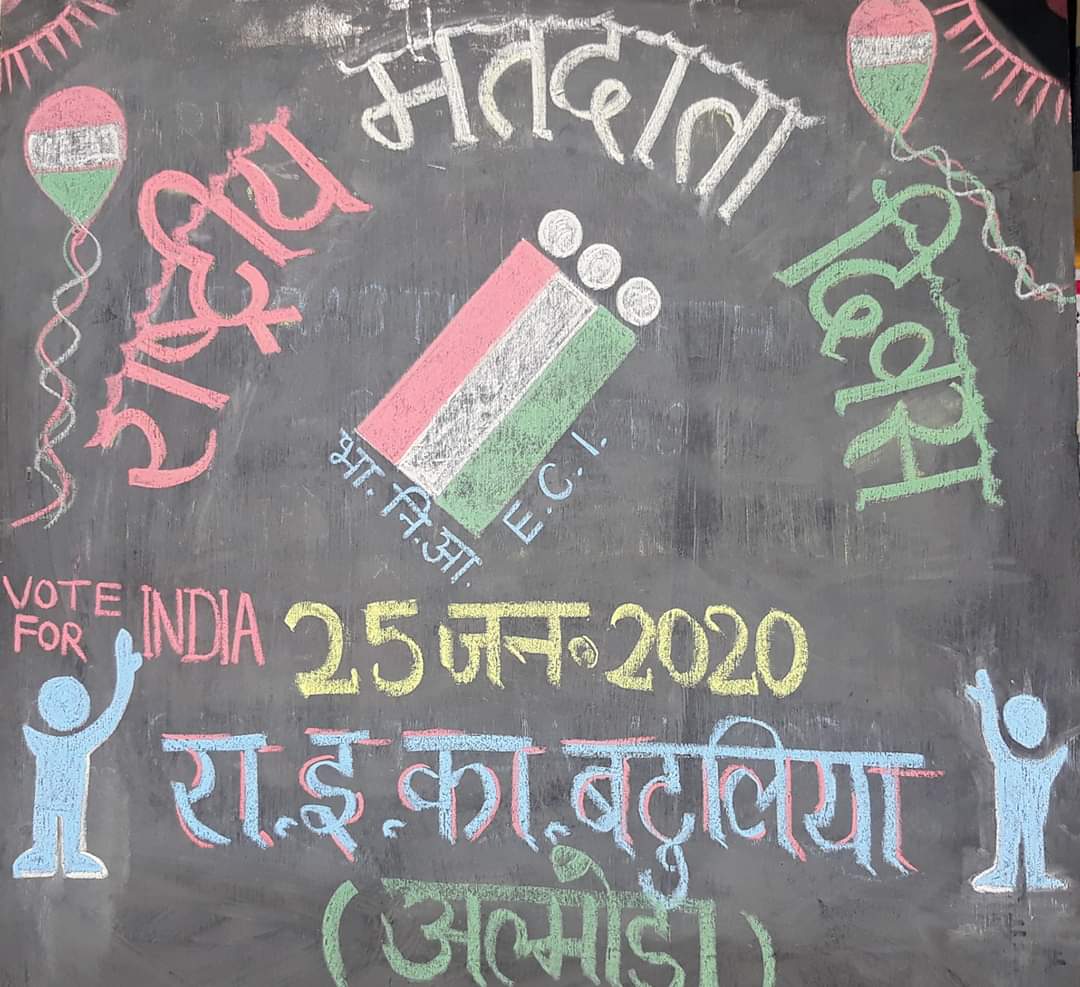 राष्ट्रीय मतदाता दिवस
भा. नि. आ.
E. C. I.
VOTE FOR INDIA
25 जन॰ 2020
रा. इ. का. बटुलिया
(अल्मोडा)